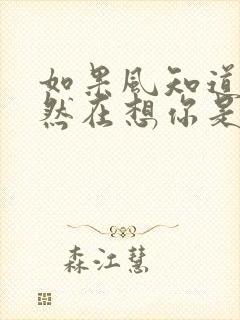 如果風知道
然在想你是
森江慧